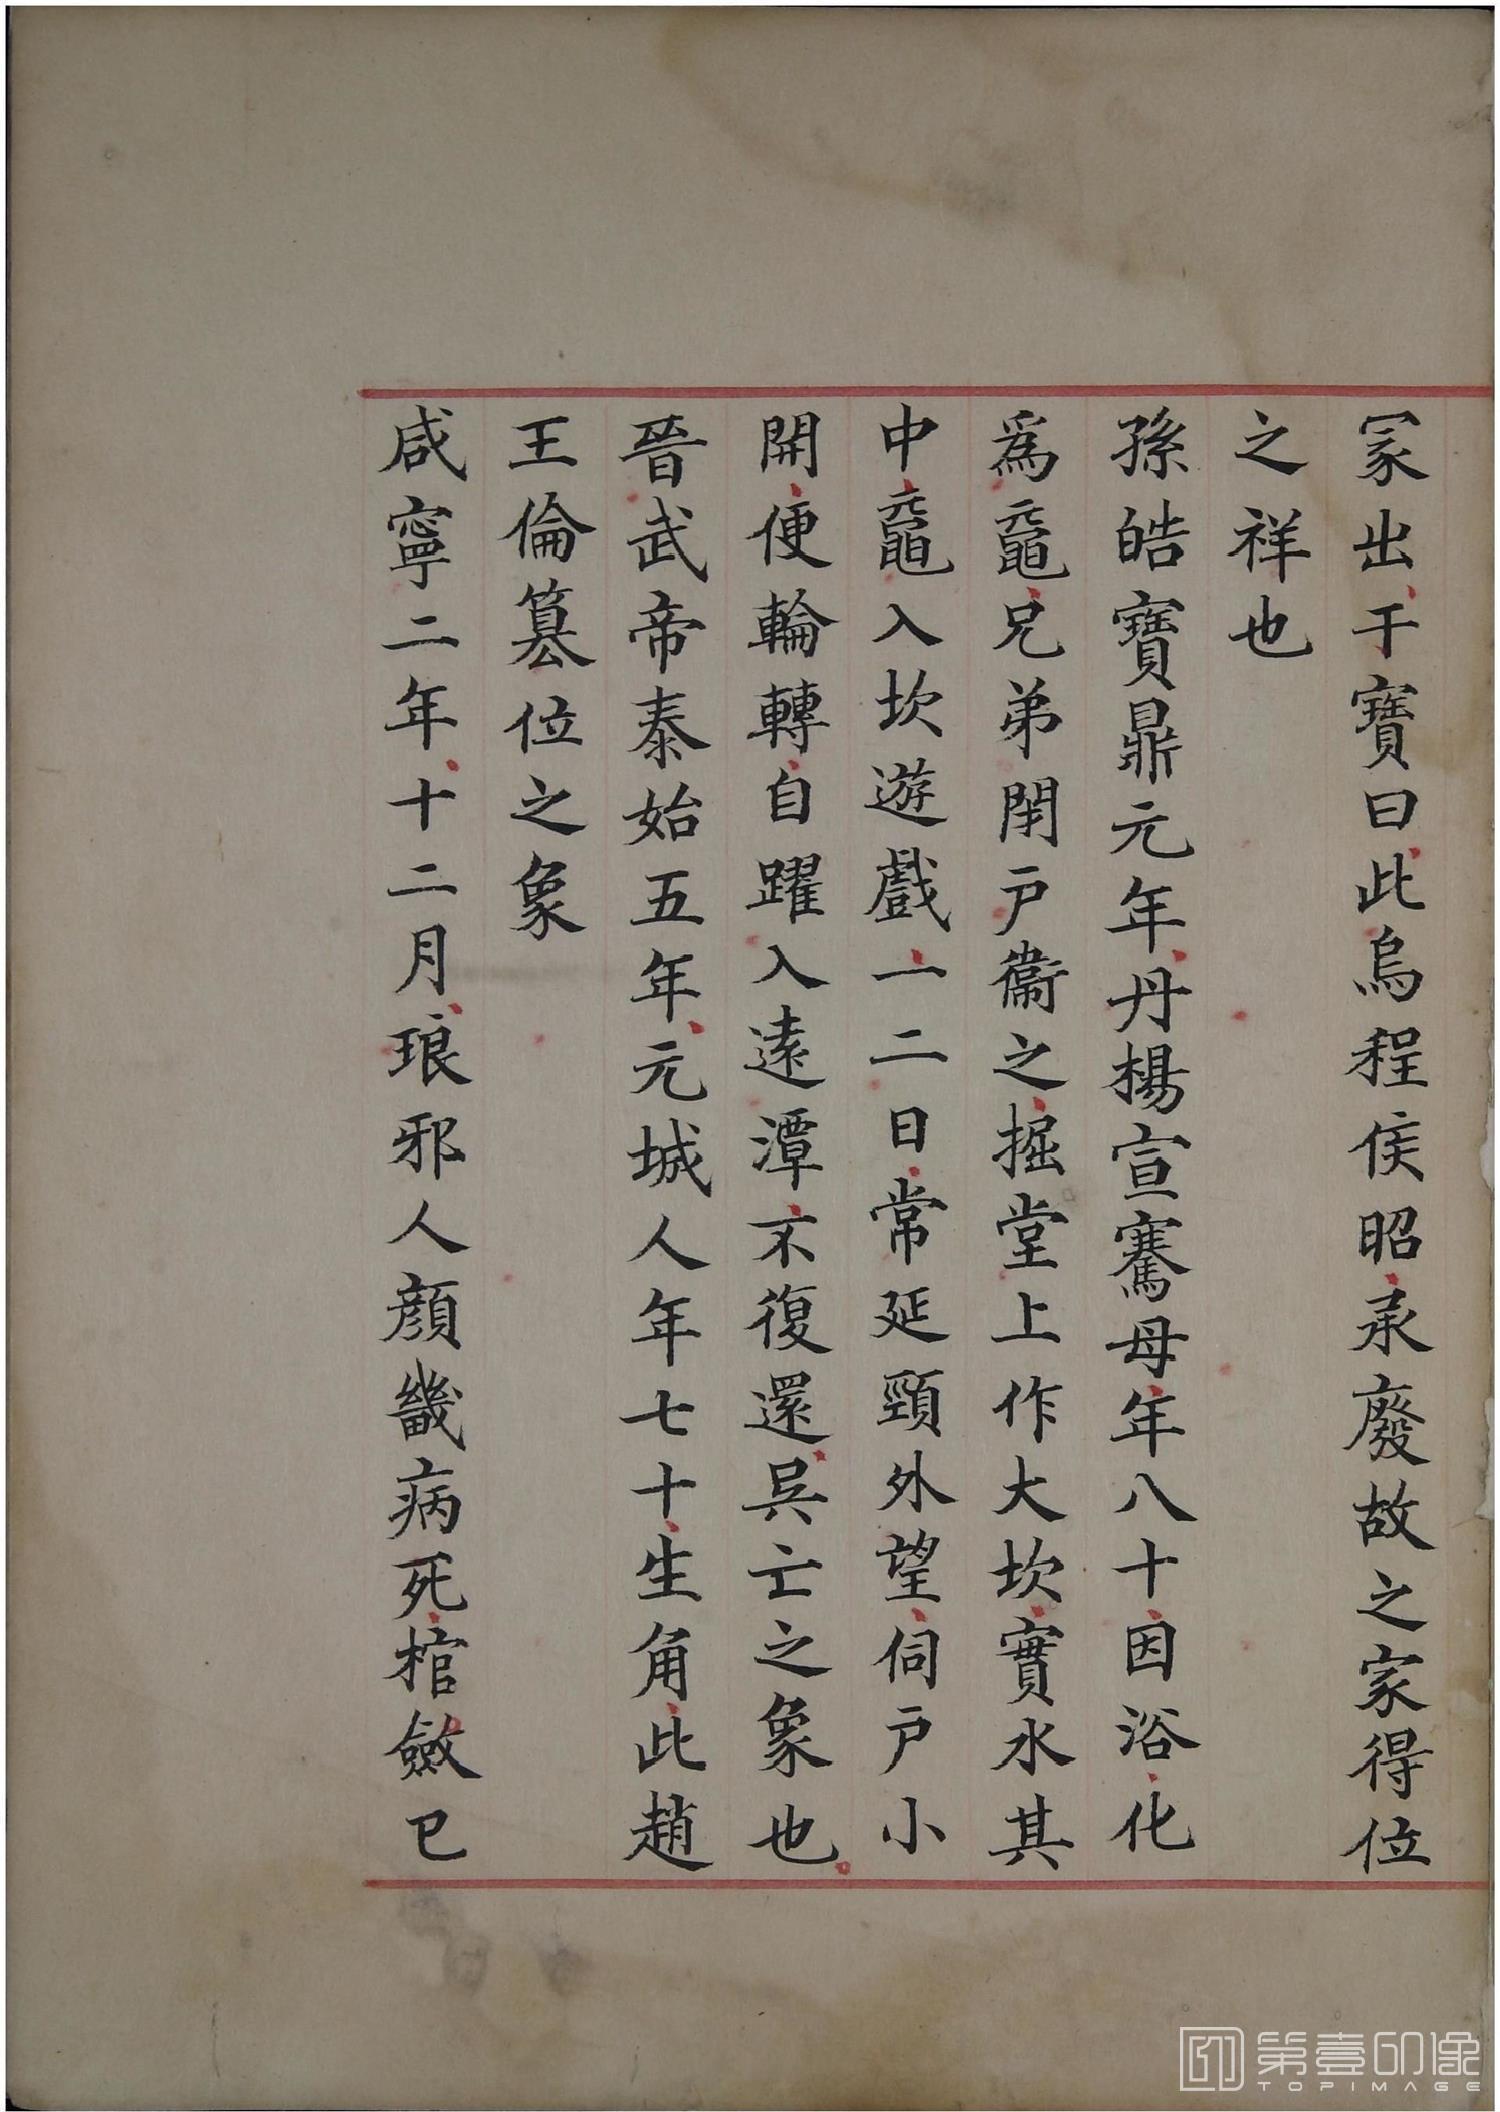 冢出干寶曰此烏程侯昭承廢故之家得位
之祥也
孫皓寶鼎元年丹楊宣騫母年八十因浴化
為黿兄弟閉戶衞之掘堂上作大坎實水其
中黿入坎遊戲一二日常延頸外望伺戶小
開便輪轉自躍入遠潭不復還吳亡之象也
晉武帝泰始五年元城人年七十生角此趙
王倫篡位之象
咸寧二年十二月琅邪人顏畿病死棺斂已
第壹印像
TOPIMAGE